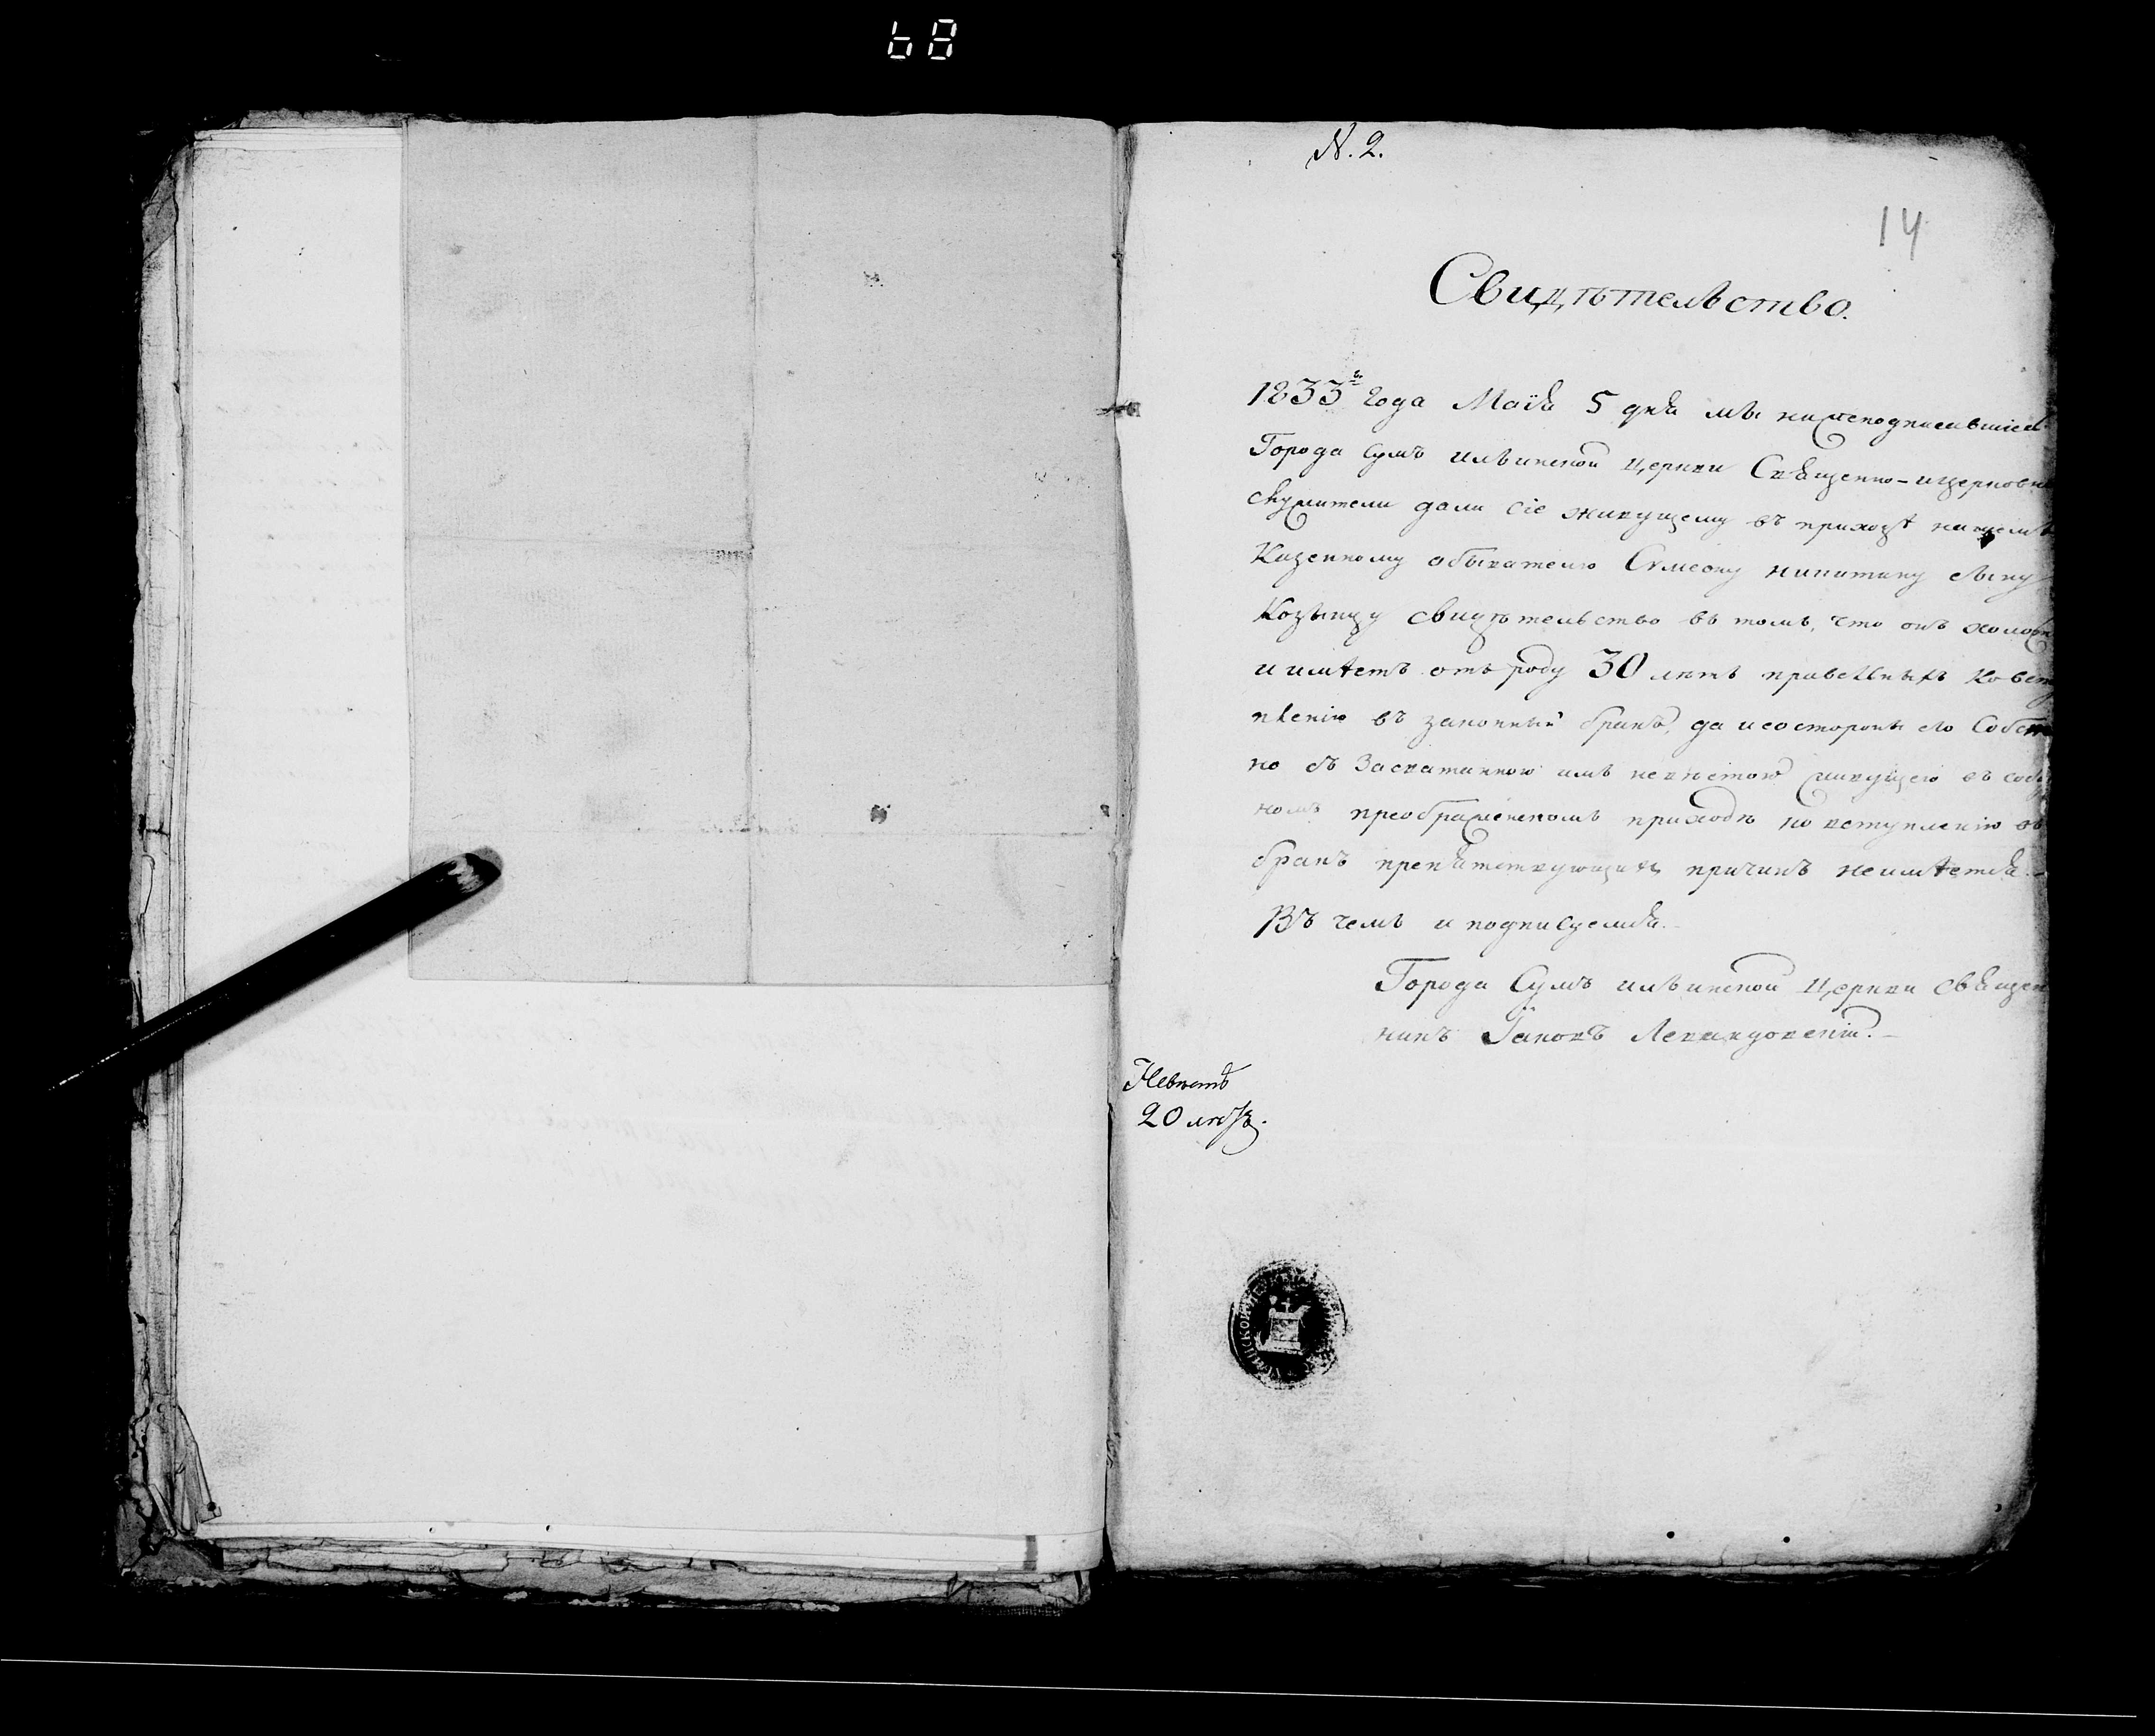 68
N. 2.
14
Свидѣтельство.
1833го Года Маія 5 дня мы нижеподписавшіеся
Города Сумъ ильинской Церкви Священно-ицерковно
служители дали сіе живущему въ приходѣ нашемъ
Казенному обывателю Сѵмеону никитину сыну
свидѣтельство въ томъ, что онъ холостъ
и имѣетъ отъ роду 30 лѣтъ правельныхъ ковсту
пленію въ законный бракъ, да исостороны его Собствен
но съ Засватанною имъ невѣстою живущею въ собор
номъ преображенскомъ приходѣ ковступленію въ
бракъ препятствующихъ причинъ неимѣется.
Въ чемъ и подписуемся.
Города Сумъ ильинской Церкви священ
никъ Іаковъ Левандовскій.
Невѣстѣ
20 лѣтъ.